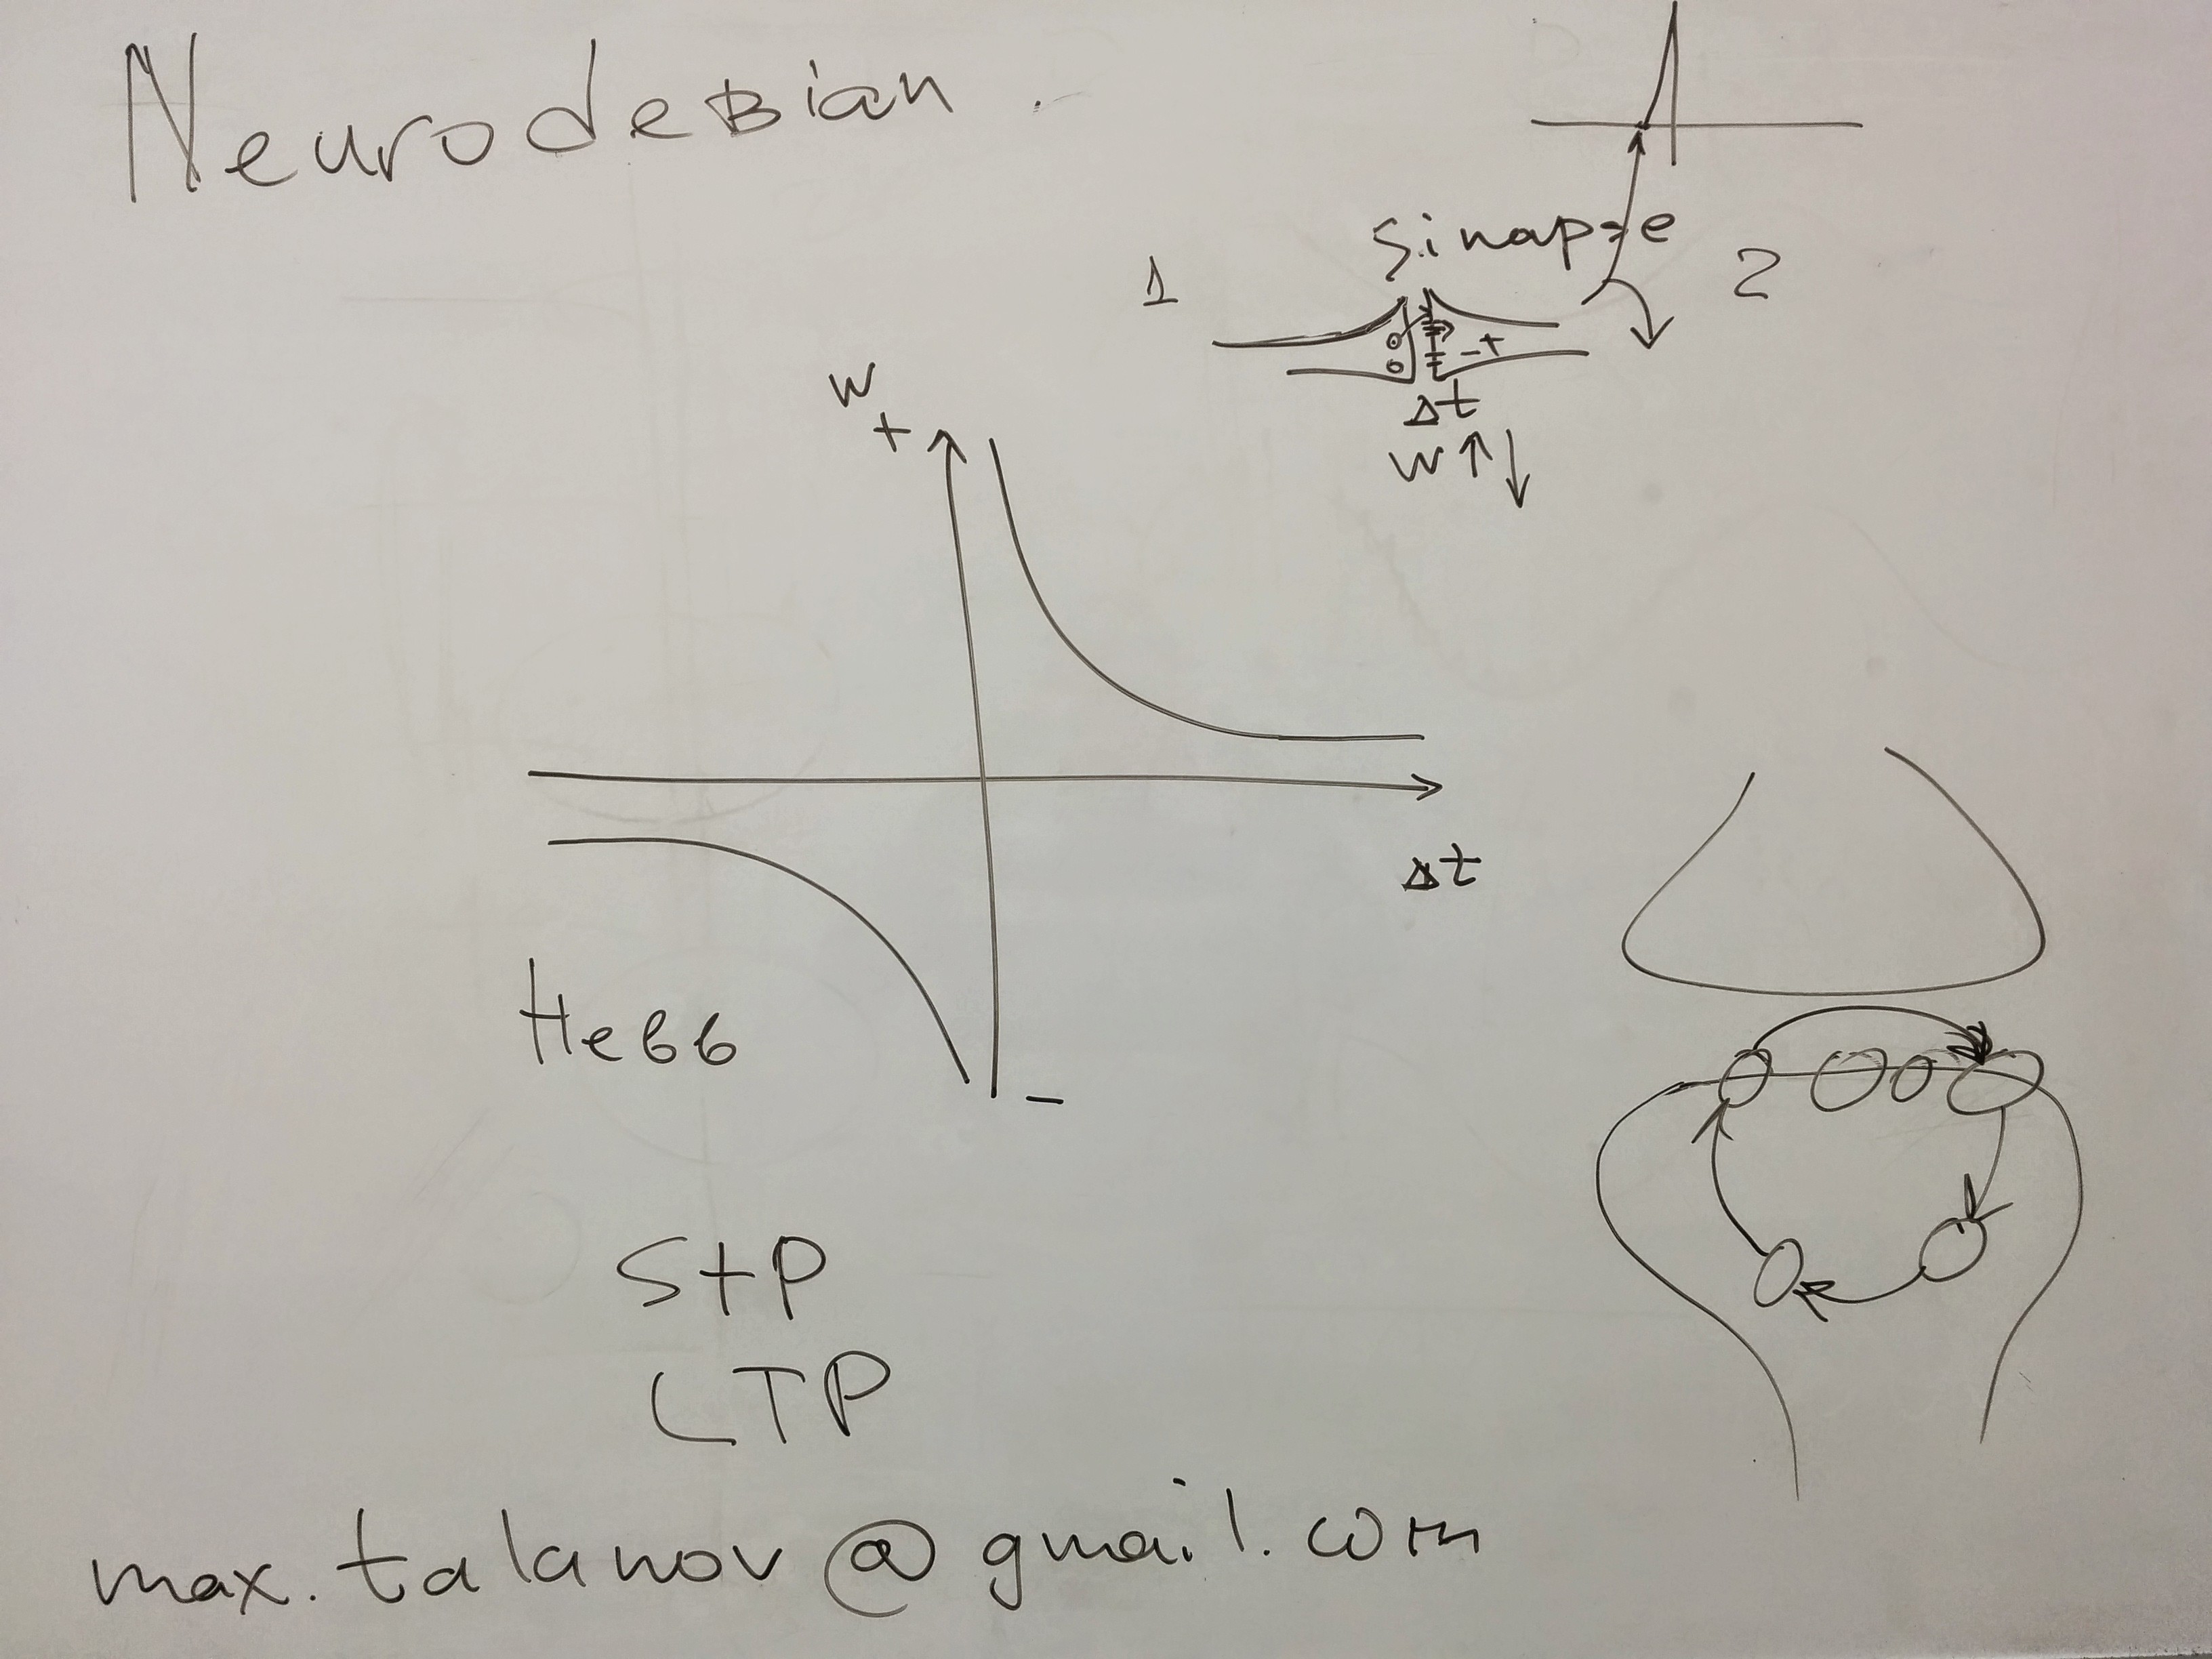 Neurodebian.
sinapse
1
2
-+
Δt
w ↑↓
w
+
Δt
Hebb
-
STP
LTP
max.talanov@gmail.com